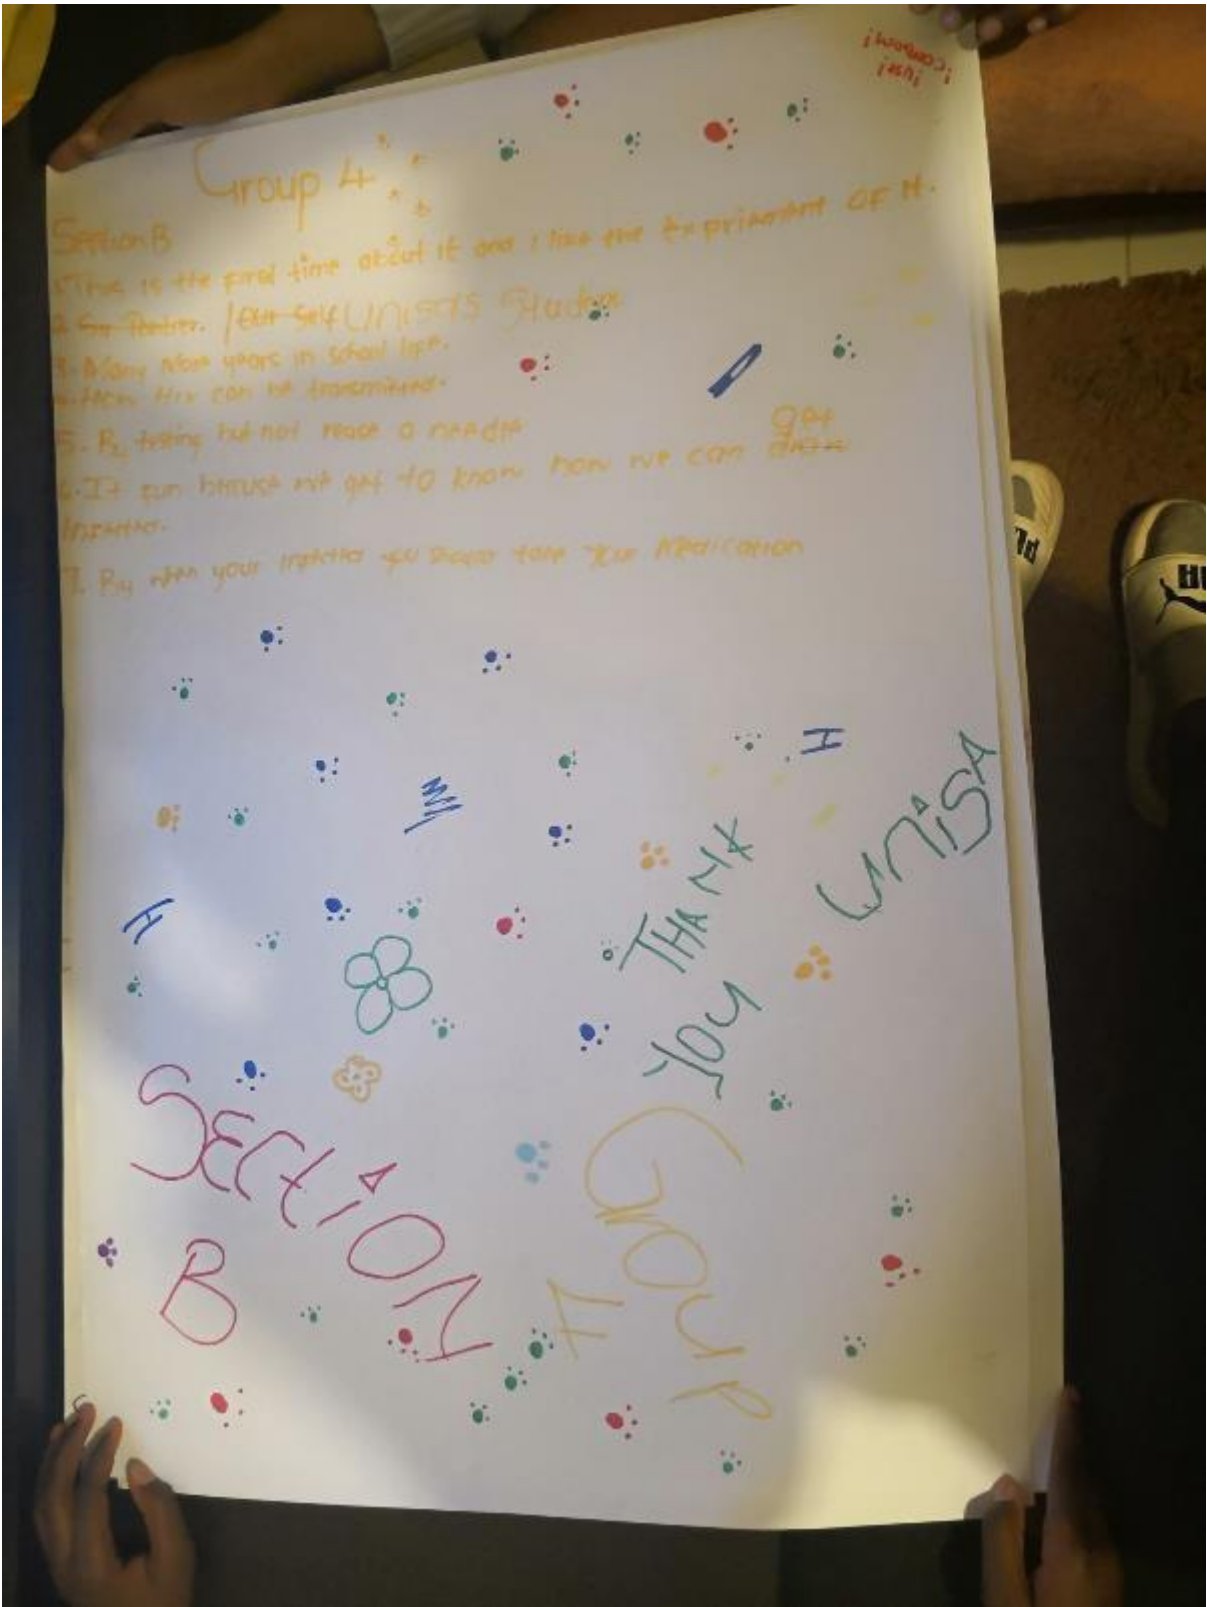 Group 4
Section B
1. This is the first time about it and I like the Expriement OF it.
2. Self UNISA'S Student
3. Many More years in school life.
4. How HIV can be transmitted.
5. By testing but not reuse a needle
get
6. It fun because we get to know how we can
infected.
7. By when your infected you should take your Medication
H
H
THANK
YOU
UNISA
SECTION
B
Group
4